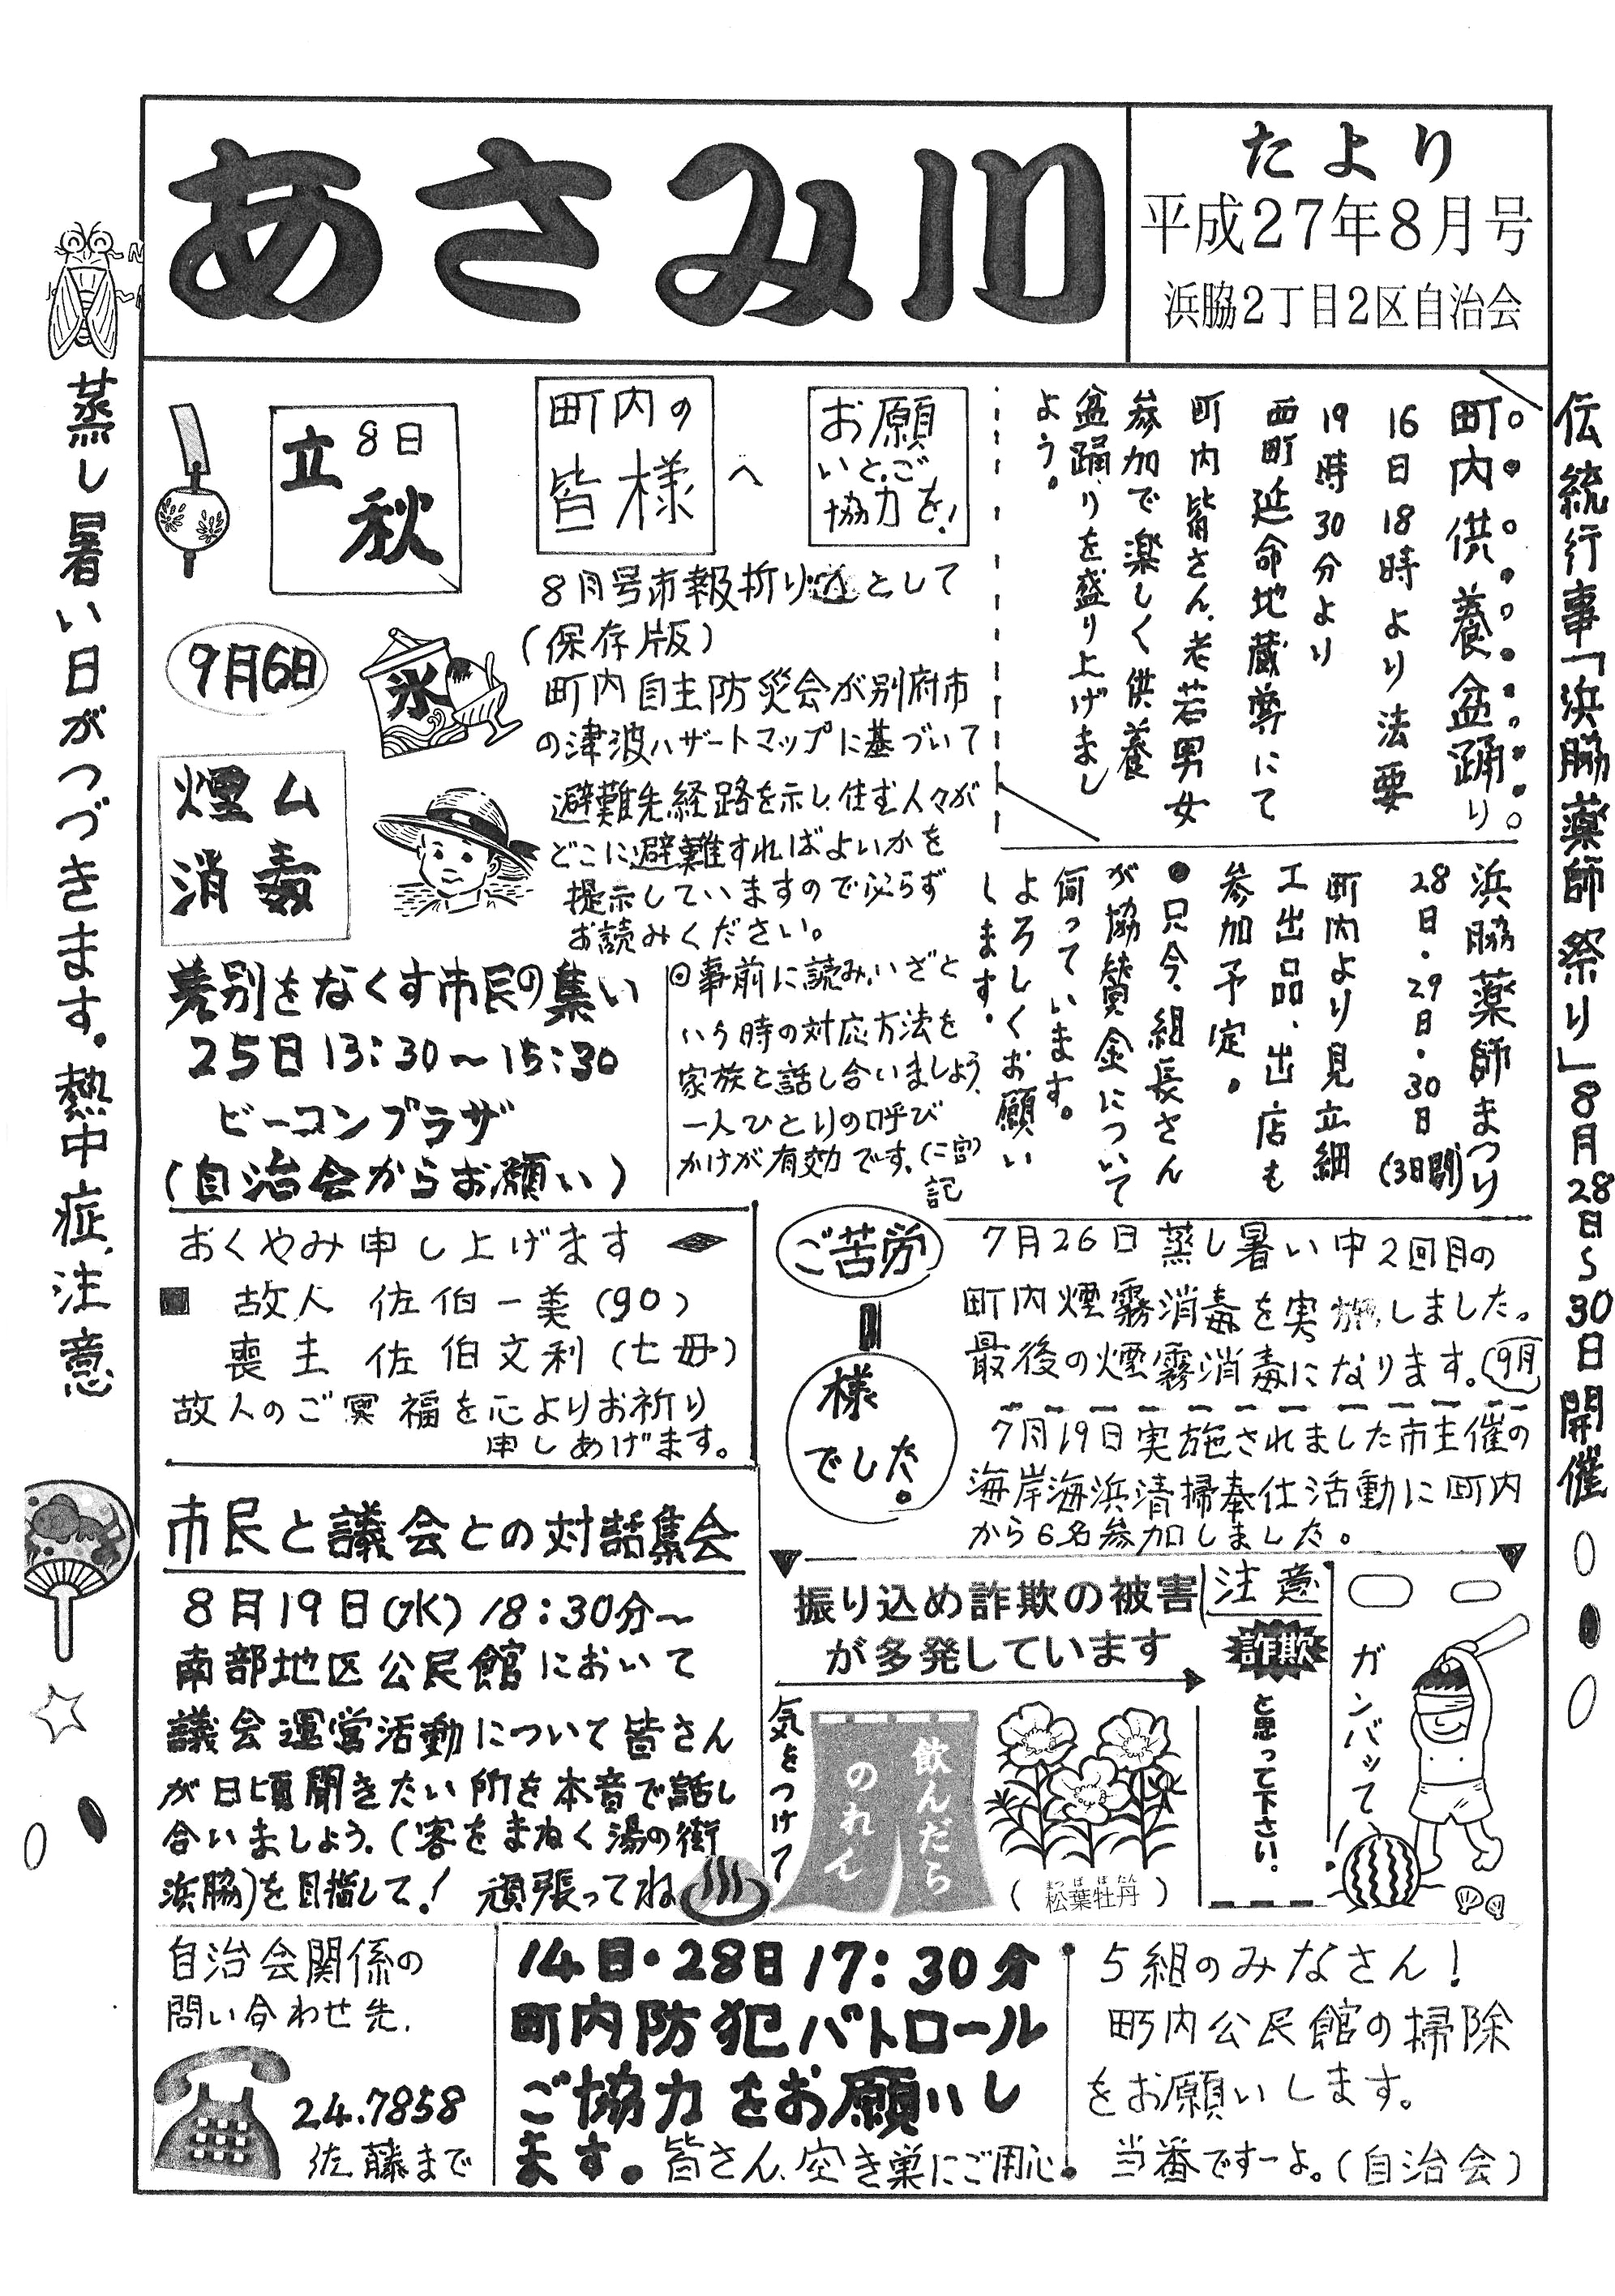 あさみ川
たより
平成27年8月号
浜脇2丁目2区自治会
伝統行事「浜脇薬師祭り」8月28日~30日開催
蒸し暑い日がつづきます。熱中症、注意
町内供養盆踊り
16日18時より法要
19時30分より
西町延命地蔵尊にて
町内皆さん、老若男女
参加で楽しく供養
盆踊りを盛り上げまし
よう。
お願
いとご
協力を!
町内の
皆様
へ
8月号市報折り込として
(保存版)
町内自主防災会が別府市
の津波ハザートマップに基づいて
避難先経路を示し、住む人々が
どこに避難すればよいかを
提示していますので必らず
お読みください。
◎事前に読み、いざと
いう時の対応方法を
家族と話し合いましよう、
一人ひとりの呼び
かけが有効です。(二宮)
記
8日
立秋
9月6日
氷
煙ム
消毒
差別をなくす市民の集い
25日13:30~15:30
ビーコンプラザ
(自治会からお願い)
浜脇薬師まつり
28日・29日・30日(3日間)
町内より見立細
工出品、出店も
参加予定。
●只今、組長さん
が協賛金について
伺っています。
よろしくお願い
します。
おくやみ申し上げます
■ 故人 佐伯一美(90)
喪主 佐伯文利(七毋)
故人のご冥福を心よりお祈り
申しあげます。
ご苦労
様
でした。
7月26日蒸し暑い中2回目の
町内煙霧消毒を実施しました。
最後の煙霧消毒になります。(9月)
7月19日実施されました市主催の
海岸海浜清掃奉仕活動に町内
から6名参加しました。
市民と議会との対話集会
8月19日(水)18:30分~
南部地区公民館において
議会運営活動について皆さん
が日頃聞きたい所を本音で話し
合いましょう。(客をまねく湯の街
浜脇)を目指して! 頑張ってね
振り込め詐欺の被害
が多発しています
注意
詐欺
と思って下さい。
気をつけて
飲んだら
のれん
(松葉牡丹)
まつばぼたん
ガンバッて!
自治会関係の
問い合わせ先.
24.7858
佐藤まで
14日・28日17:30分
町内防犯パトロール
ご協力をお願いし
ます。皆さん、空き巣にご用心。
5組のみなさん!
町内公民館の掃除
をお願いします。
当番ですーよ。(自治会)